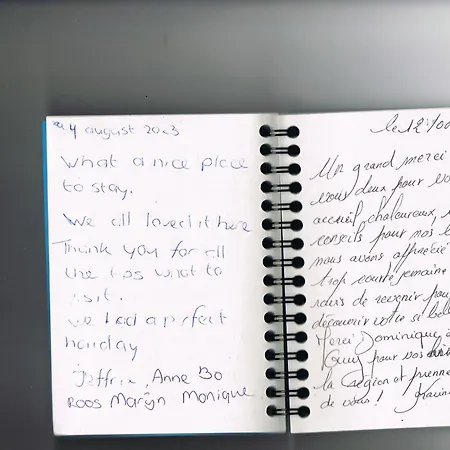 4 august 2013
What a nice place
to stay.
We all loved it here
Thank you for all
the tips what to
visit.
we had a perfect
holiday
Jeffrey, Anne Bo
ROOS Marijn Monique
le 12
Un grand merci
vous deux pour vo
accueil chaleureux,
conseils pour nos
nous avons apprécié
trop courte semaine
ravis de revenir pou
découvrir votre si bell
Merci Dominique
Guy pour vos
la Région et prenne
de vous !